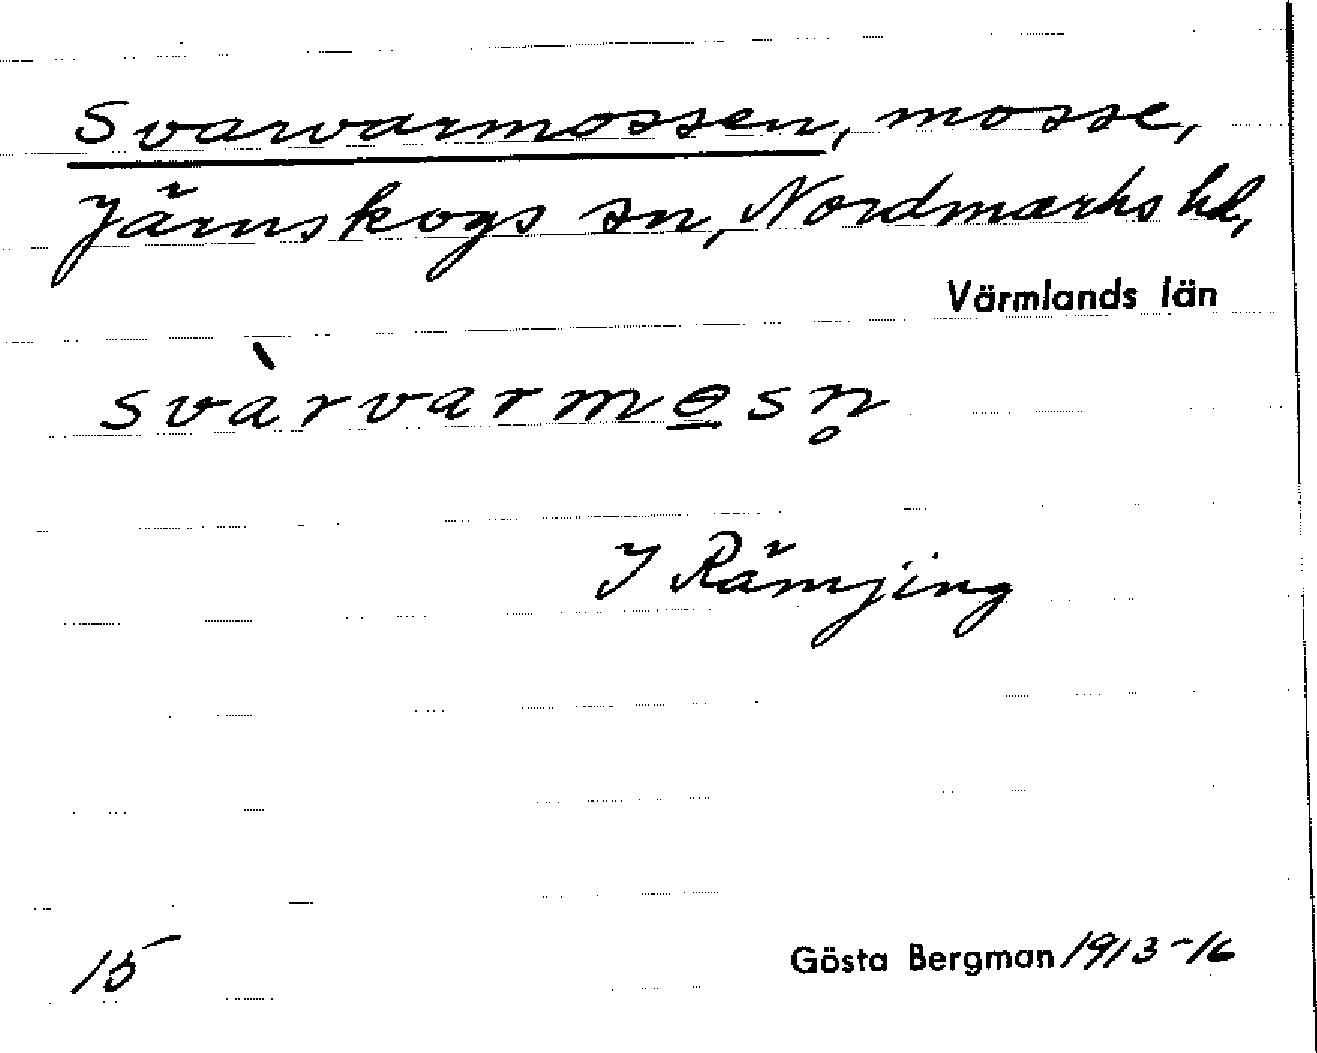 Svarvarmossen, mosse,
Järnskogs sn, Nordmarks hd,
Värmlands län
svàrvarmɵ̲sn̥
I Rämjing
15 Gösta Bergman 1913-16